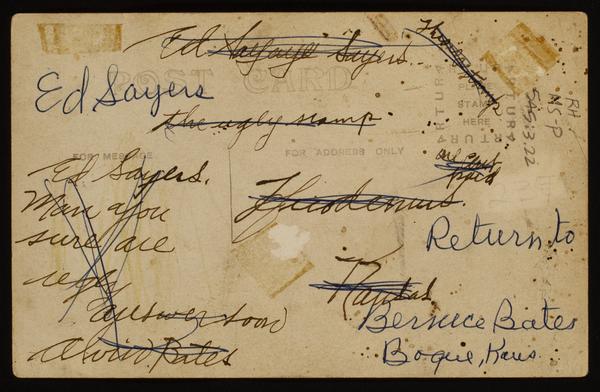 Ed Sayers
POST CARD
Ed Sayers
PLACE
STAMP
HERE
ARTURA
RH
MS-P
545:3.22
the ugly stamp
FOR MESSAGE
FOR ADDRESS ONLY
Ed Sayers.
Man you
sure are
ugly
answer soon
Alvin Bates
paid
Theodemus.
Kansas
Return to
Bernice Bates
Bogue, Kans